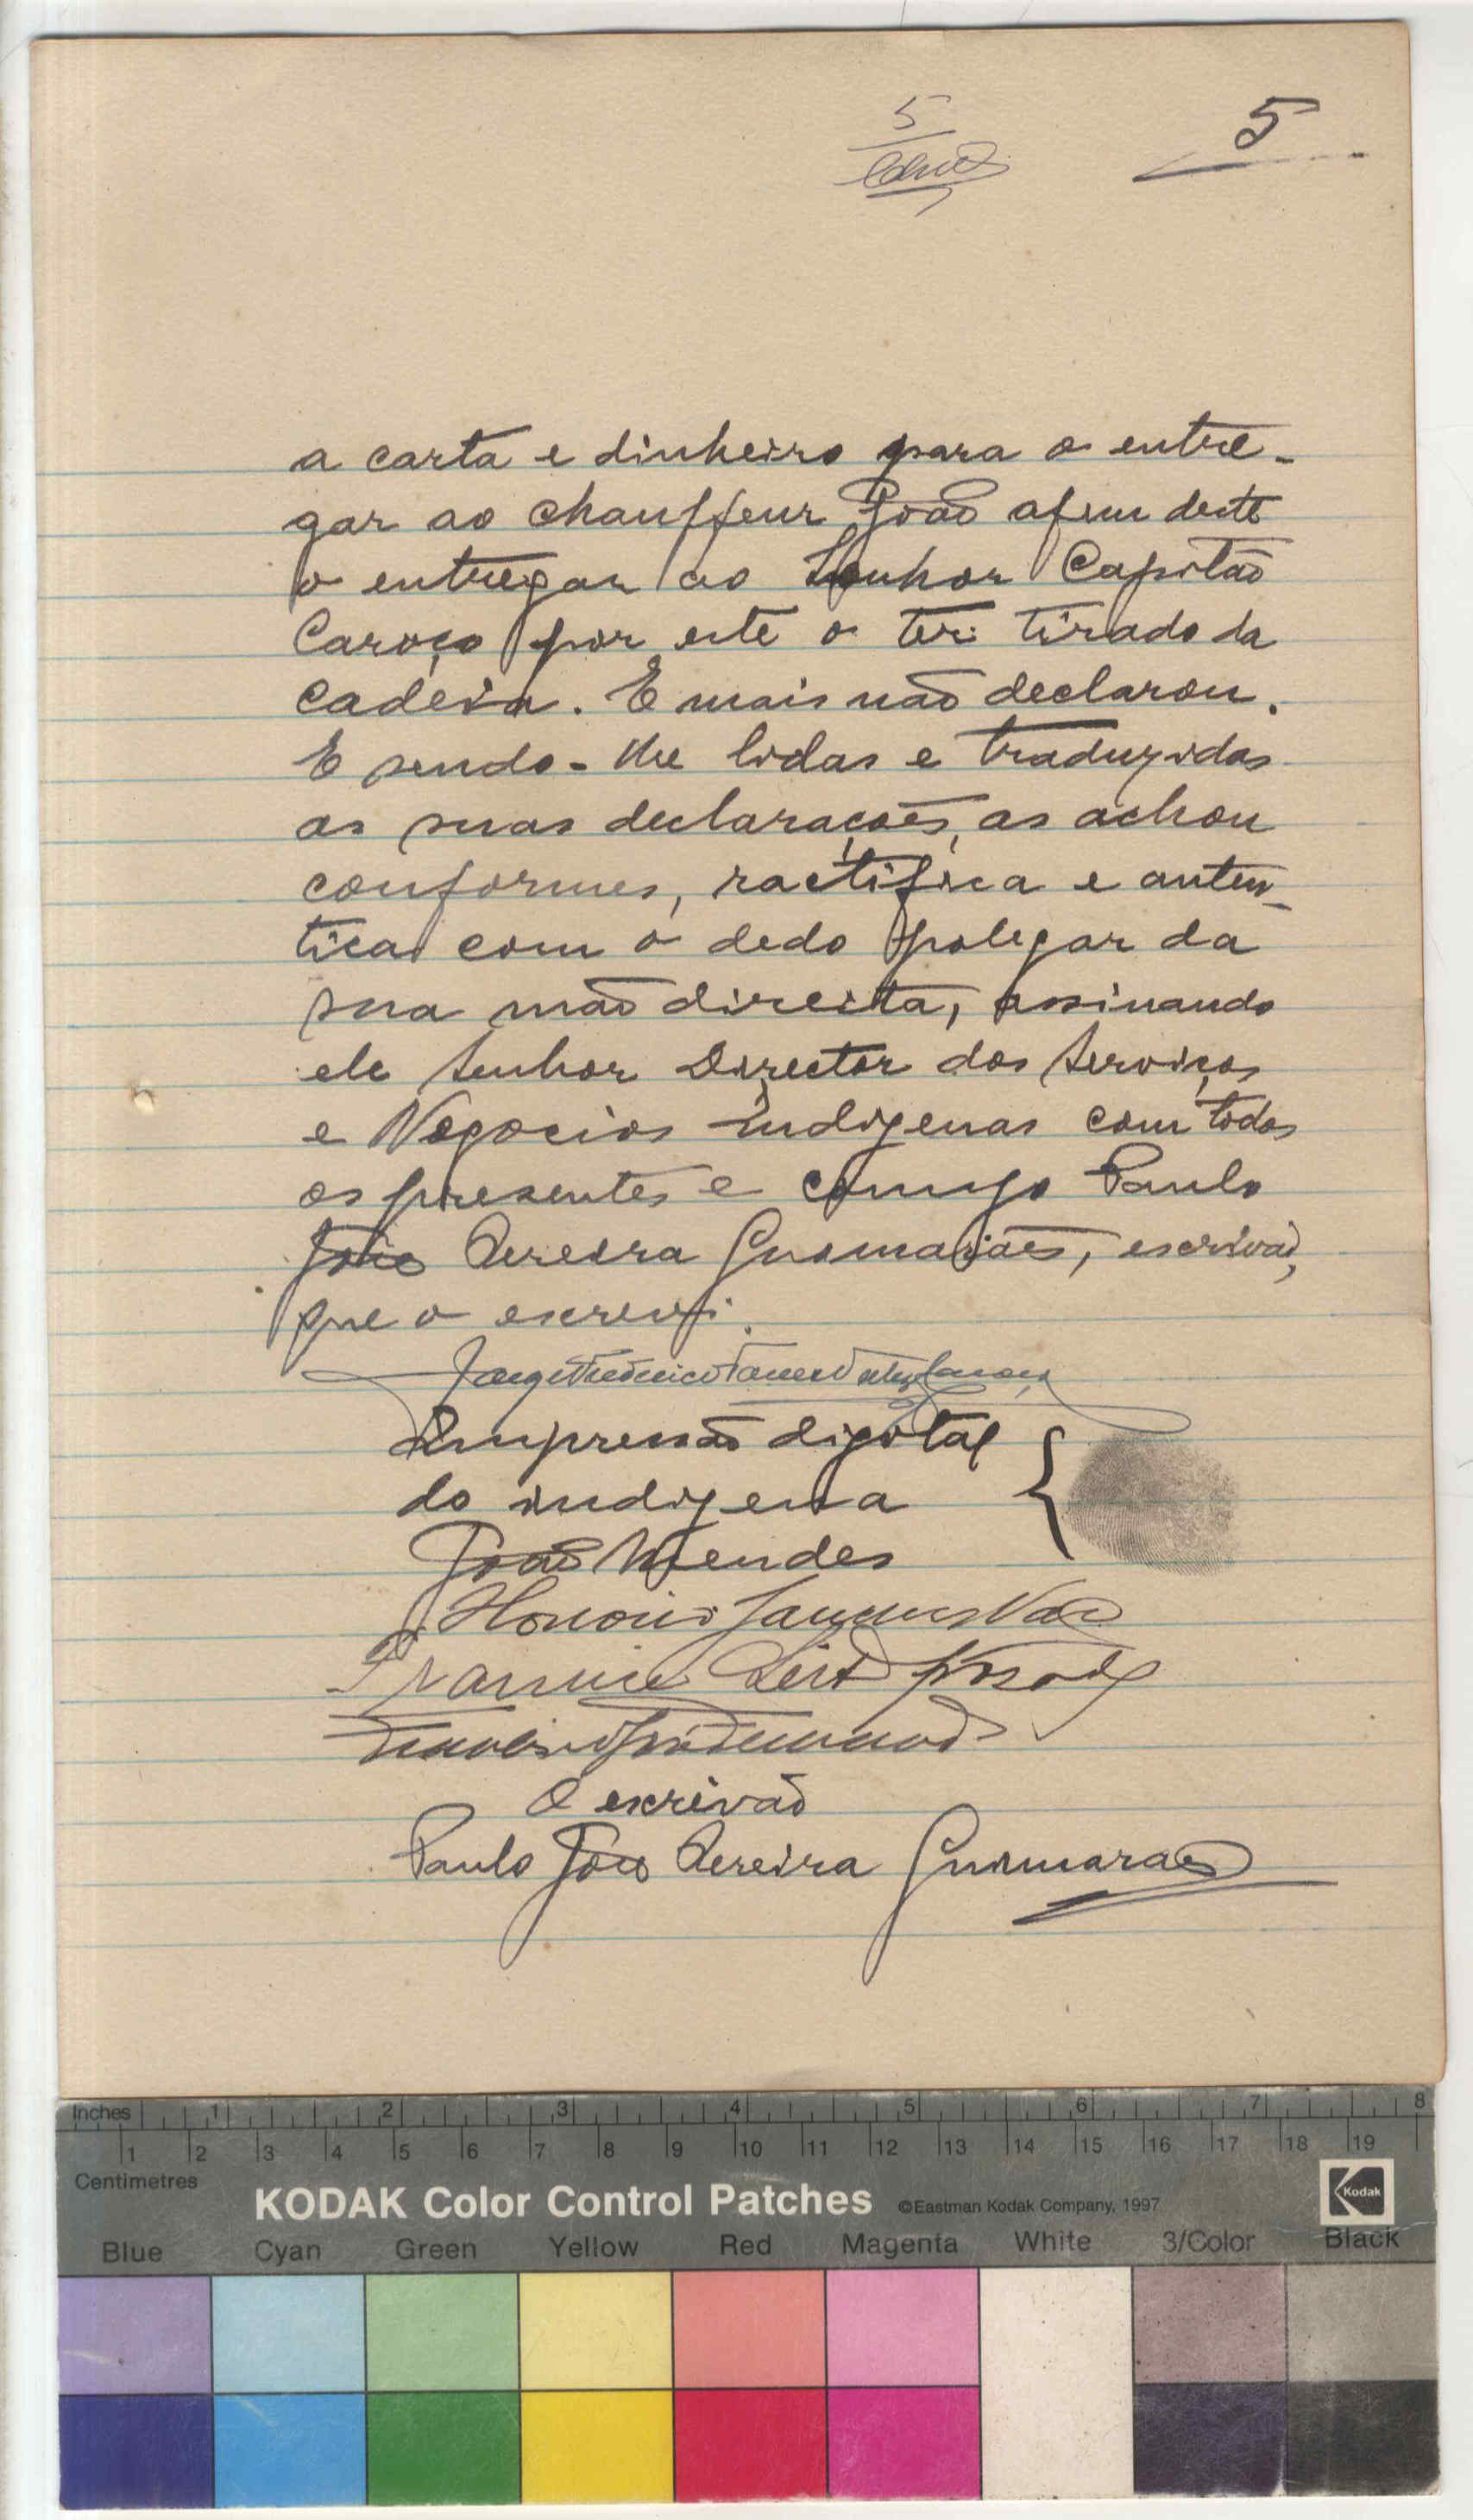 5
5
a carta e dinheiro para o entre-
gar ao chauffeur João afim deste
o entregar ao Senhor Capitão
Caroço por este o ter tirado da
cadeia. E mais não declarou.
E sendo-lhe lidas e traduzidas
as suas declarações, as achou
conformes, ractifica e auten-
tica com o dedo polegar da
sua mão direita, assinando
ele Senhor Director dos Serviços
e Negocios Indigenas com todos
os presentes e comigo Paulo
João Pereira Guimarães, escrivão,
que o escrevi.
Impressão digital
do indigena
João Mendes
O escrivão
Paulo João Pereira Guimarães
Inches 1 2 3 4 5 6 7 8
1 2 3 4 5 6 7 8 9 10 11 12 13 14 15 16 17 18 19
Centimetres
KODAK Color Control Patches ©Eastman Kodak Company, 1997 Kodak
Blue Cyan Green Yellow Red Magenta White 3/Color Black